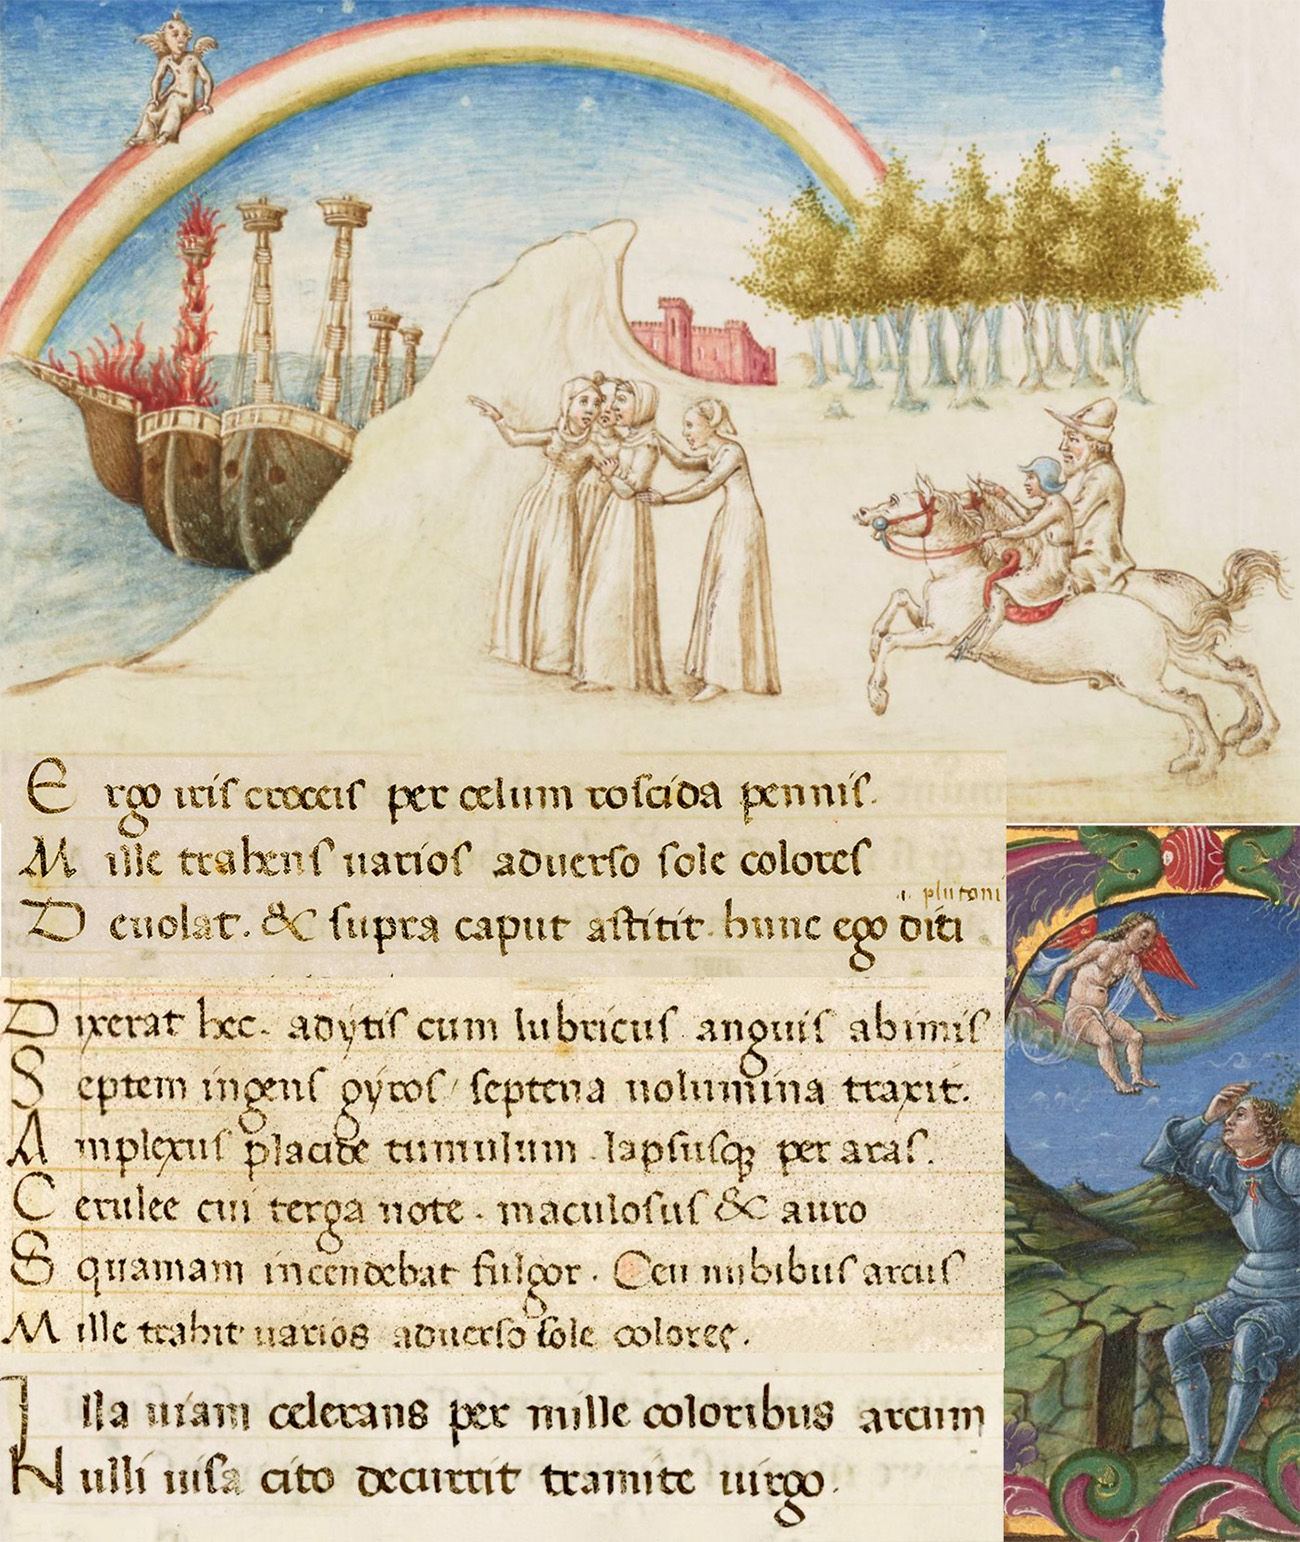 Ergo iris croceis per celum roscida pennis.
Mille trahens uarios aduerso sole colores
.i. plutoni
Deuolat. & supra caput astitit. hunc ego diti
Dixerat hec. adytis cum lubricus anguis ab imis
Septem ingens gyros / septena uolumina traxit.
Amplexus placide tumulum. lapsusq; per aras.
Cerulee cui terga note. maculosus & auro
Squamam incendebat fulgor. Ceu nubibus arcus
Mille trahit uarios aduerso sole colores.
Illa uiam celerans per mille coloribus arcum
Nulli uisa cito decurrit tramite uirgo.